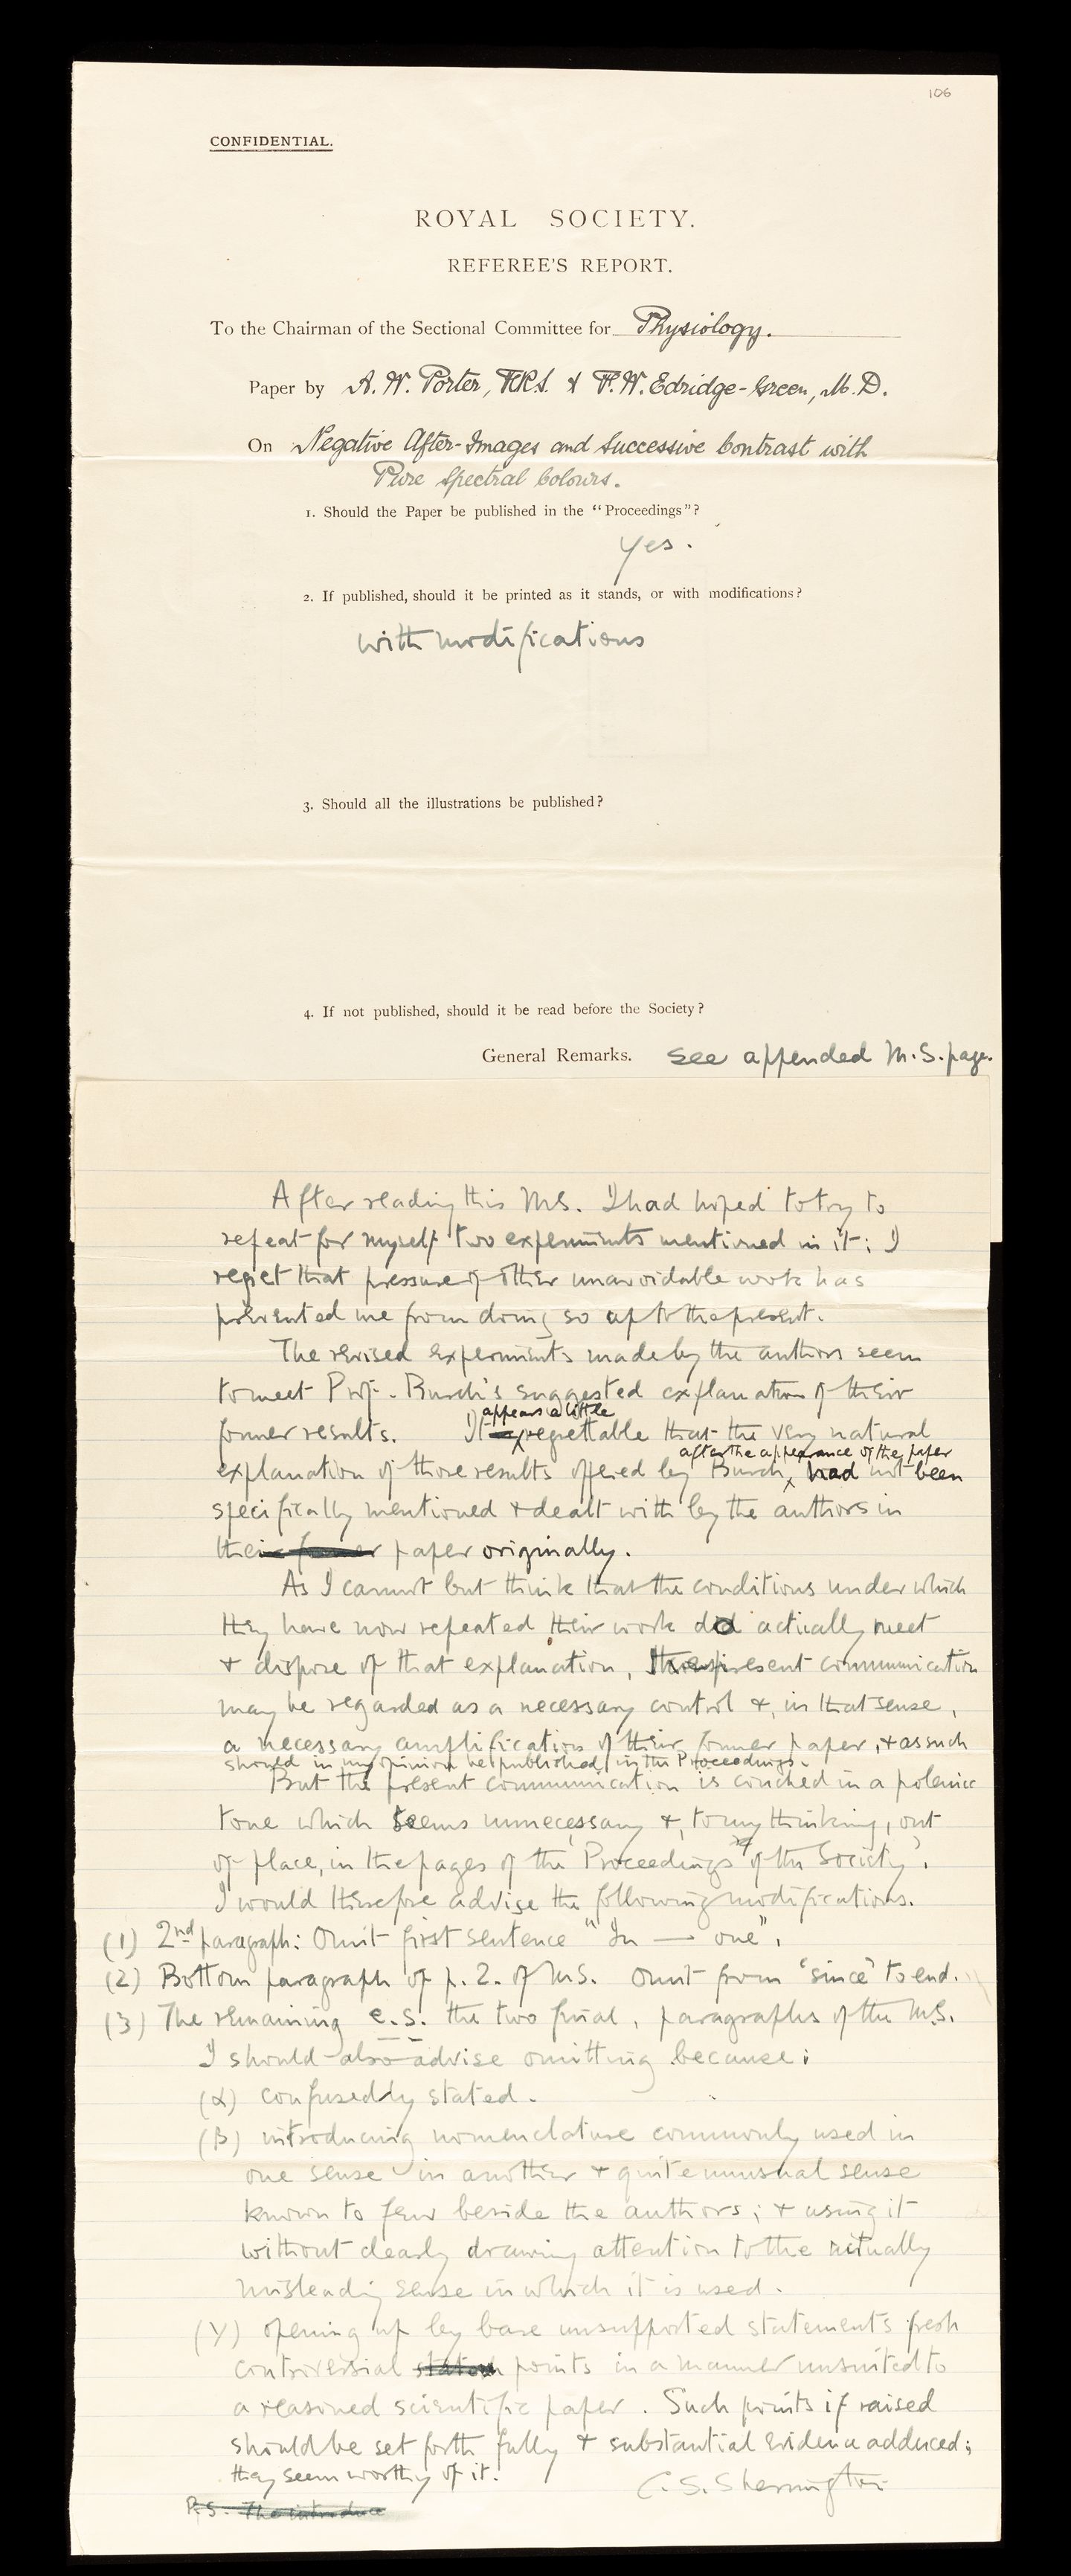 106
CONFIDENTIAL.
ROYAL SOCIETY.
REFEREE'S REPORT.
To the Chairman of the Sectional Committee for Physiology.
Paper by A. W. Porter, F.R.S. & F. W. Edridge-Green, M.D.
On Negative After-Images and Successive Contrast with
Pure Spectral Colours.
1. Should the Paper be published in the "Proceedings"?
Yes.
2. If published, should it be printed as it stands, or with modifications?
with modifications
3. Should all the illustrations be published?
4. If not published, should it be read before the Society?
General Remarks. see appended M.S. page.
After reading this MS. I had hoped to try to
repeat for myself two experiments mentioned in it; I
regret that pressure of other unavoidable work has
prevented me from doing so up to the present.
The revised experiments made by the authors seem
to meet Prof. Burch's suggested explanation of their
appears a little
former results. It regrettable that the very natural
after the appearance of the paper
explanation of those results offered by Burch, had not been
specifically mentioned & dealt with by the authors in
their former paper originally.
As I cannot but think that the conditions under which
they have now repeated their work did actually meet
& dispose of that explanation, present communication
may be regarded as a necessary control &, in that sense,
a necessary amplification of their former paper, & as such
should in my opinion be published in the Proceedings.
But the present communication is couched in a polemic
tone which seems unnecessary &, to my thinking, out
of place, in the pages of the "Proceedings of the Society".
I would therefore advise the following modifications.
(1) 2nd paragraph: Omit first sentence "In — one".
(2) Bottom paragraph of p. 2. of M.S. Omit from 'since' to end.
(3) The remaining e.s. the two final, paragraphs of the M.S.
I should also advise omitting because:
(α) confusedly stated.
(β) introducing nomenclature commonly used in
one sense in another & quite unusual sense
known to few beside the authors; & using it
without clearly drawing attention to the actually
misleading sense in which it is used.
(γ) opening up by bare unsupported statements fresh
controversial points in a manner unsuited to
a reasoned scientific paper. Such points if raised
should be set forth fully & substantial evidence adduced;
they seem worthy of it.
C. S. Sherrington
P.S. The introduce